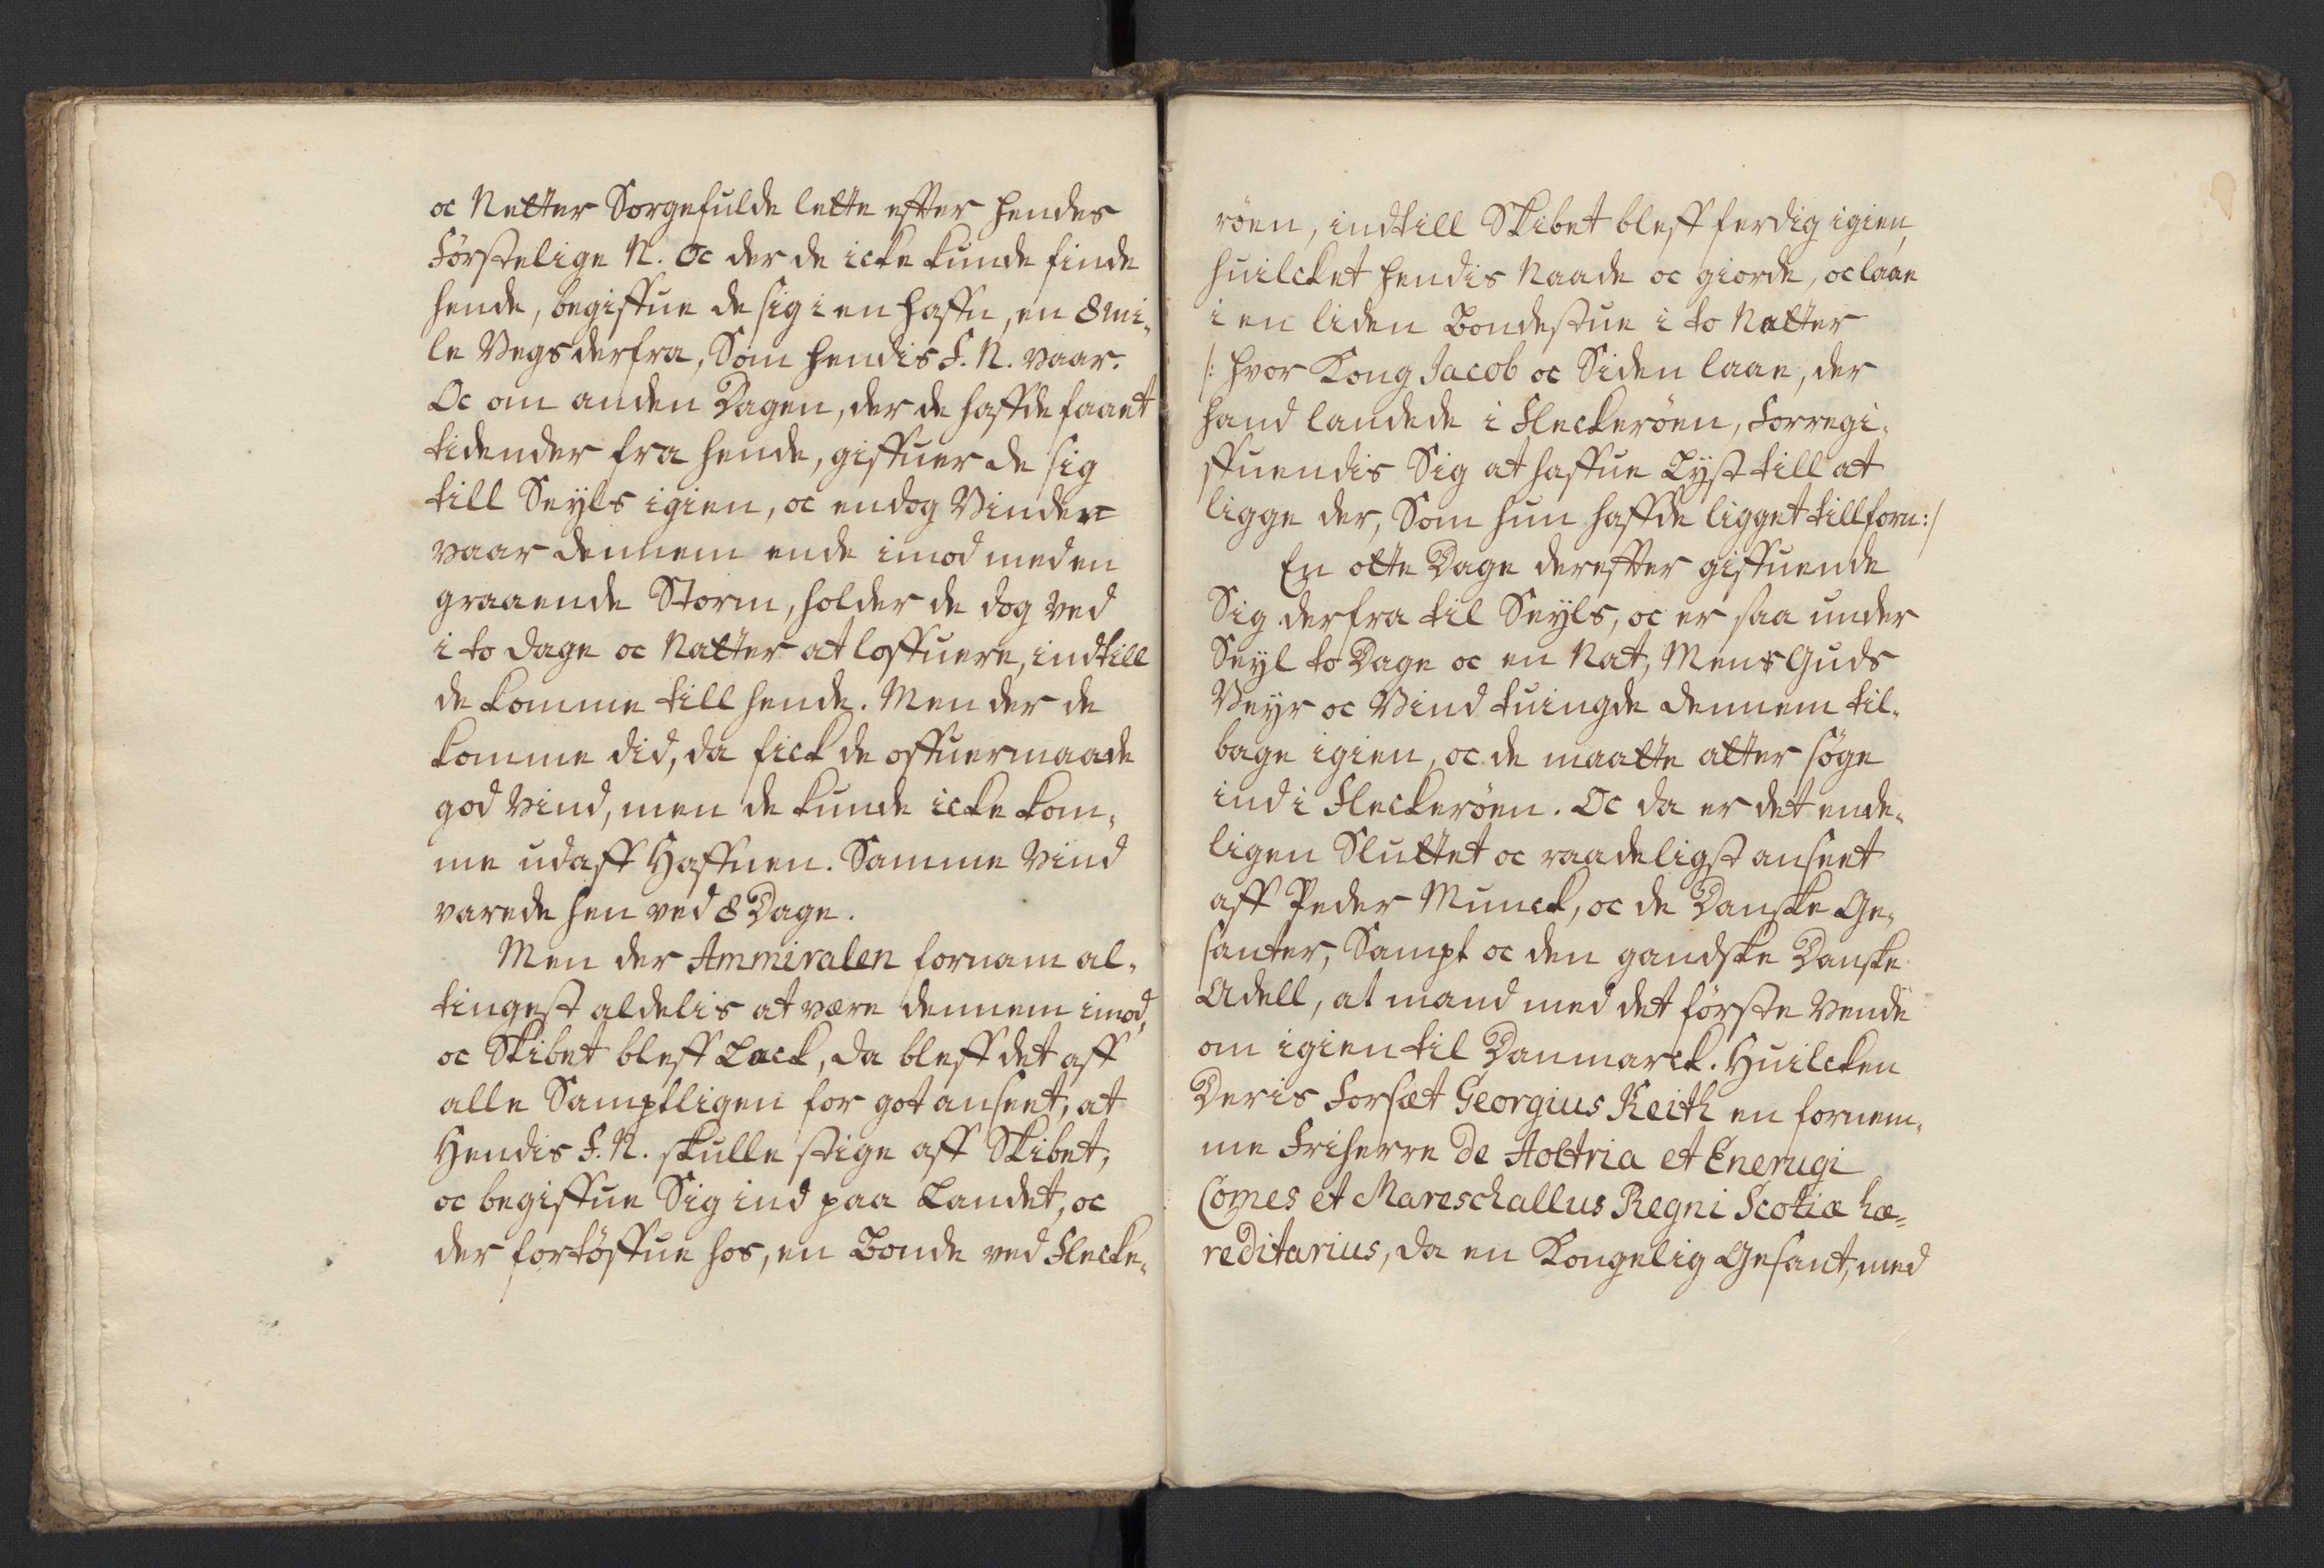 oc Netter Sorgefulde lette effter hendes
Förstelige N. Oc der de icke kunde finde
hende, begiffue de sig i en haffn, en 8 mi-
le Vegs derfra, Som hendis F. N. vaar.
Oc om anden Dagen, der de haffde faaet
tidender fra hende, giffuer de sig
till Seyls igien, oc endog Vinden
vaar dennem ende imod med en
graaende Storm, holder de dog ved
i to dage oc Natter at loffuere, indtill
de komme till hende. Men der de
komme did, da fick de offuermaade
god Vind, men de kunde icke kom-
me udaff Haffnen. Samme Vind
varede hen ved 8 Dage.
Men der Ammiralen fornam al-
tingest aldelis at være dennem imod,
oc Skibet bleff Læck, da bleff det aff
alle Samptligen for got anseet, at
Hendis F. N. skulle stige aff Skibet,
oc begiffue Sig ind paa Landet, oc
der fortöffue hos, en Bonde ved Flecke-
röen, indtill Skibet bleff ferdig igien,
huilcket hendis Naade oc giorde, oc laae
i en liden Bondestue i to Netter
/: hvor Kong Jacob oc Siden laae, der
hand landede i Fleckeröen, Forregi-
ffuendis Sig at haffue Lÿst till at
ligge der, Som hun haffde ligget tillforn :/
En otte Dage dereffter giffuende
Sig derfra til Seyls, oc er saa under
Seyl to Dage oc en Nat, Mens Guds
Veyr oc Vind tuingde dennem til-
bage igien, oc de maatte atter söge
ind i Fleckeröen. Oc da er det ende-
ligen Sluttet oc raadeligst anseet
aff Peder Munck, oc de Danske Ge-
santer, Sampt oc den gandske Danske
Adell, at mand med det förste Vende
om igien til Danmarck. Huilcken
Deris Forsæt Georgius Keith en fornem-
me Friherre de Aoltria et Enerugi
Comes et Mareschallus Regni Scotiæ hæ-
reditarius, da en Kongelig Gesant, med